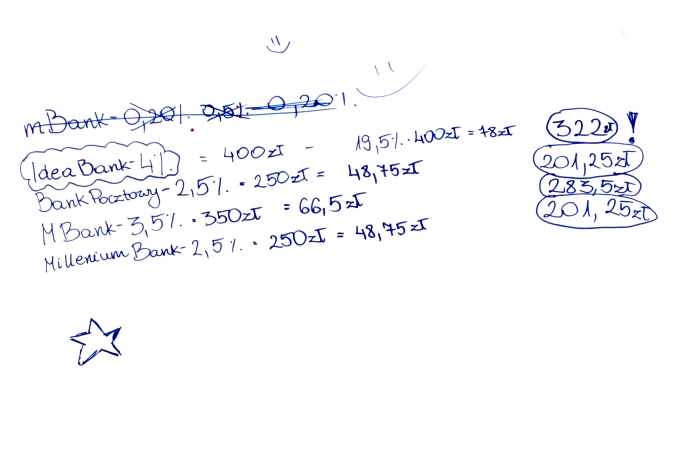 mBank - 0,20% 0,5% - 0,20%.
Idea Bank - 4% = 400zł - 19,5% · 400zł = 78zł 322zł!
Bank Pocztowy - 2,5% · 250zł = 48,75zł 201,25zł
MBank - 3,5% · 350zł = 66,5zł 283,5zł
Millenium Bank - 2,5% · 250zł = 48,75zł 201,25zł